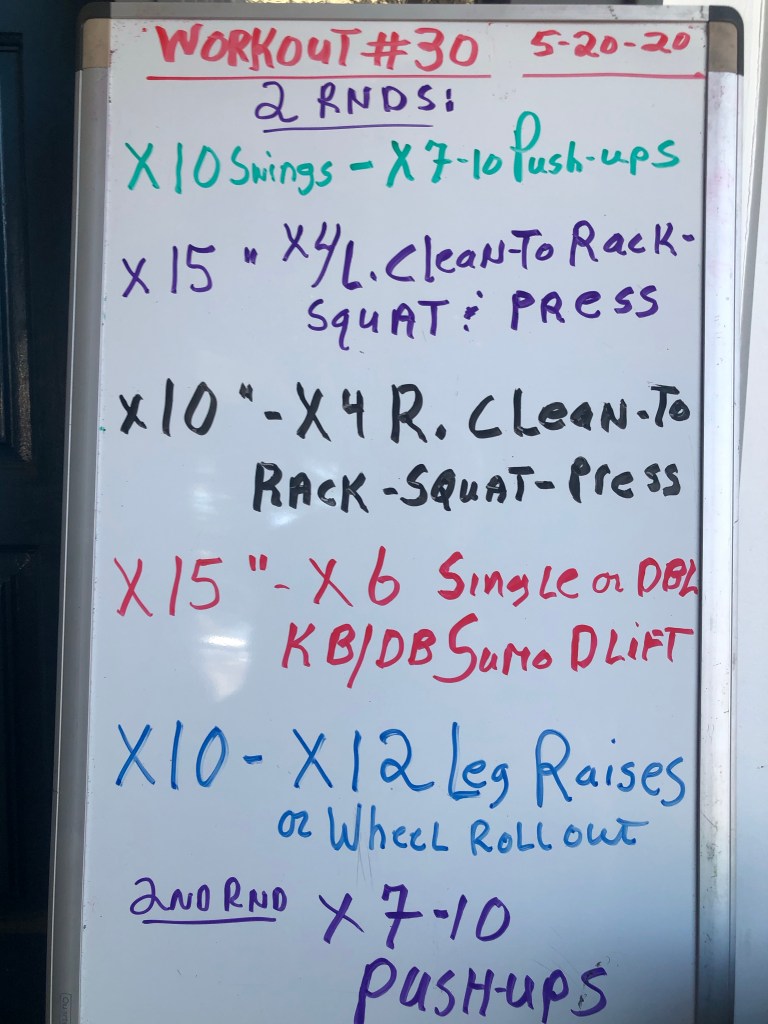 WORKOUT #30 5-20-20
2 RNDS:
X10 Swings - X7-10 Push-ups
X15 " X4 L. Clean-To Rack-
SquAT & PRESS
X10 " - X4 R. Clean-To
RACK - SQUAT - Press
X15 " - X6 Single or DBL
KB/DB Sumo DLIFT
X10 - X12 Leg Raises
or Wheel Rollout
2ND RND X7-10
PUSH-UPS